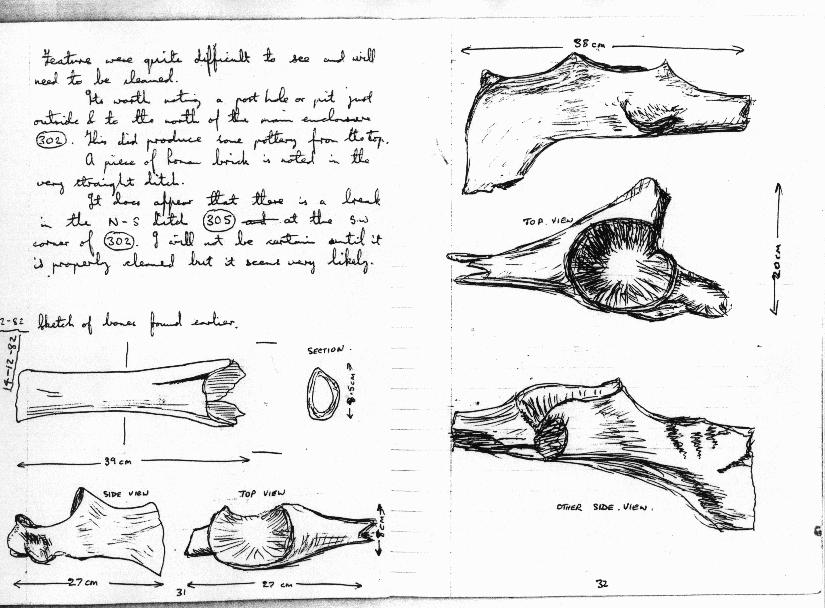 Feature were quite difficult to see and will
need to be cleaned.
Its worth noting a post hole or pit just
outside & to the north of the main enclosure
302. This did produce some pottery from the top.
A piece of Roman brick is noted in the
very straight ditch.
It does appear that there is a break
in the N-S ditch 305 at the SW
corner of 302. I will not be certain until it
is properly cleaned but it seems very likely.
2-82
Sketch of bones found earlier.
14-12-82
SECTION.
39 cm
SIDE VIEW
TOP VIEW
27 cm
27 cm
31
38 cm
TOP VIEW
20cm
OTHER SIDE VIEW.
32